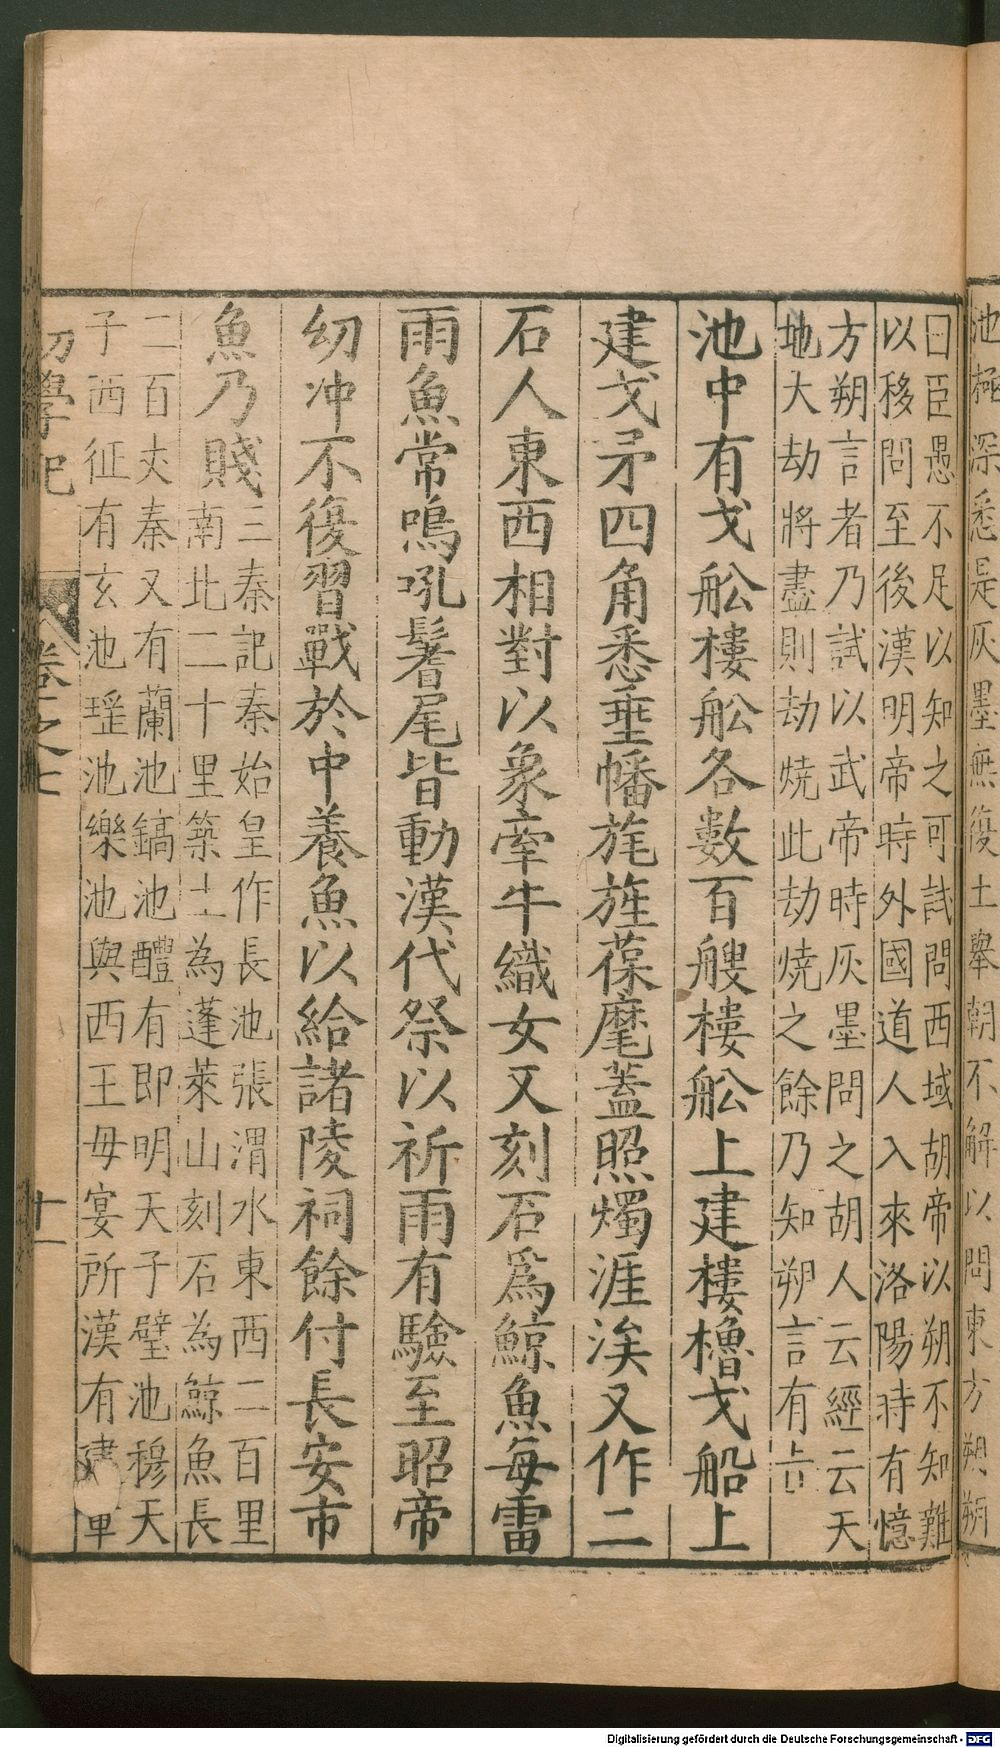 池極深悉是灰墨無復土舉朝不解以問東方朔朔
曰臣愚不足以知之可試問西域胡帝以朔不知難
以移問至後漢明帝時外國道人入來洛陽時有憶
方朔言者乃試以武帝時灰墨問之胡人云經云天
地大劫將盡則劫燒此劫燒之餘乃知朔言有旨
池中有戈舩樓舩各數百艘樓舩上建樓櫓戈船上
建戈矛四角悉垂幡旄旌葆麾蓋照燭涯涘又作二
石人東西相對以象牽牛織女又刻石爲鯨魚每雷
雨魚常鳴吼鬐尾皆動漢代祭以祈雨有驗至昭帝
幼冲不復習戰於中養魚以給諸陵祠餘付長安市
魚乃賤
三秦記秦始皇作長池張渭水東西二百里
南北二十里築土為蓬萊山刻石為鯨魚長
二百丈秦又有蘭池鎬池醴有即明天子璧池穆天
子西征有玄池瑶池樂池與西王母宴所漢有建
初學記
卷之七
十一
Digitalisierung gefördert durch die Deutsche Forschungsgemeinschaft - DFG